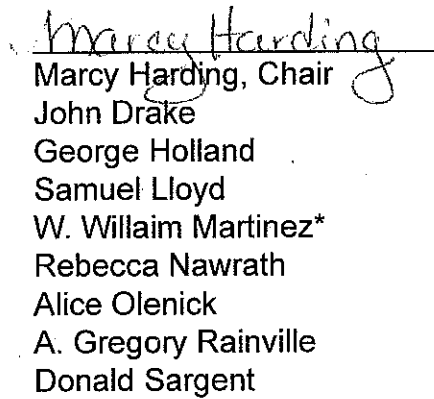 Marcy Harding
Marcy Harding, Chair
John Drake
George Holland
Samuel Lloyd
W. Willaim Martinez*
Rebecca Nawrath
Alice Olenick
A. Gregory Rainville
Donald Sargent